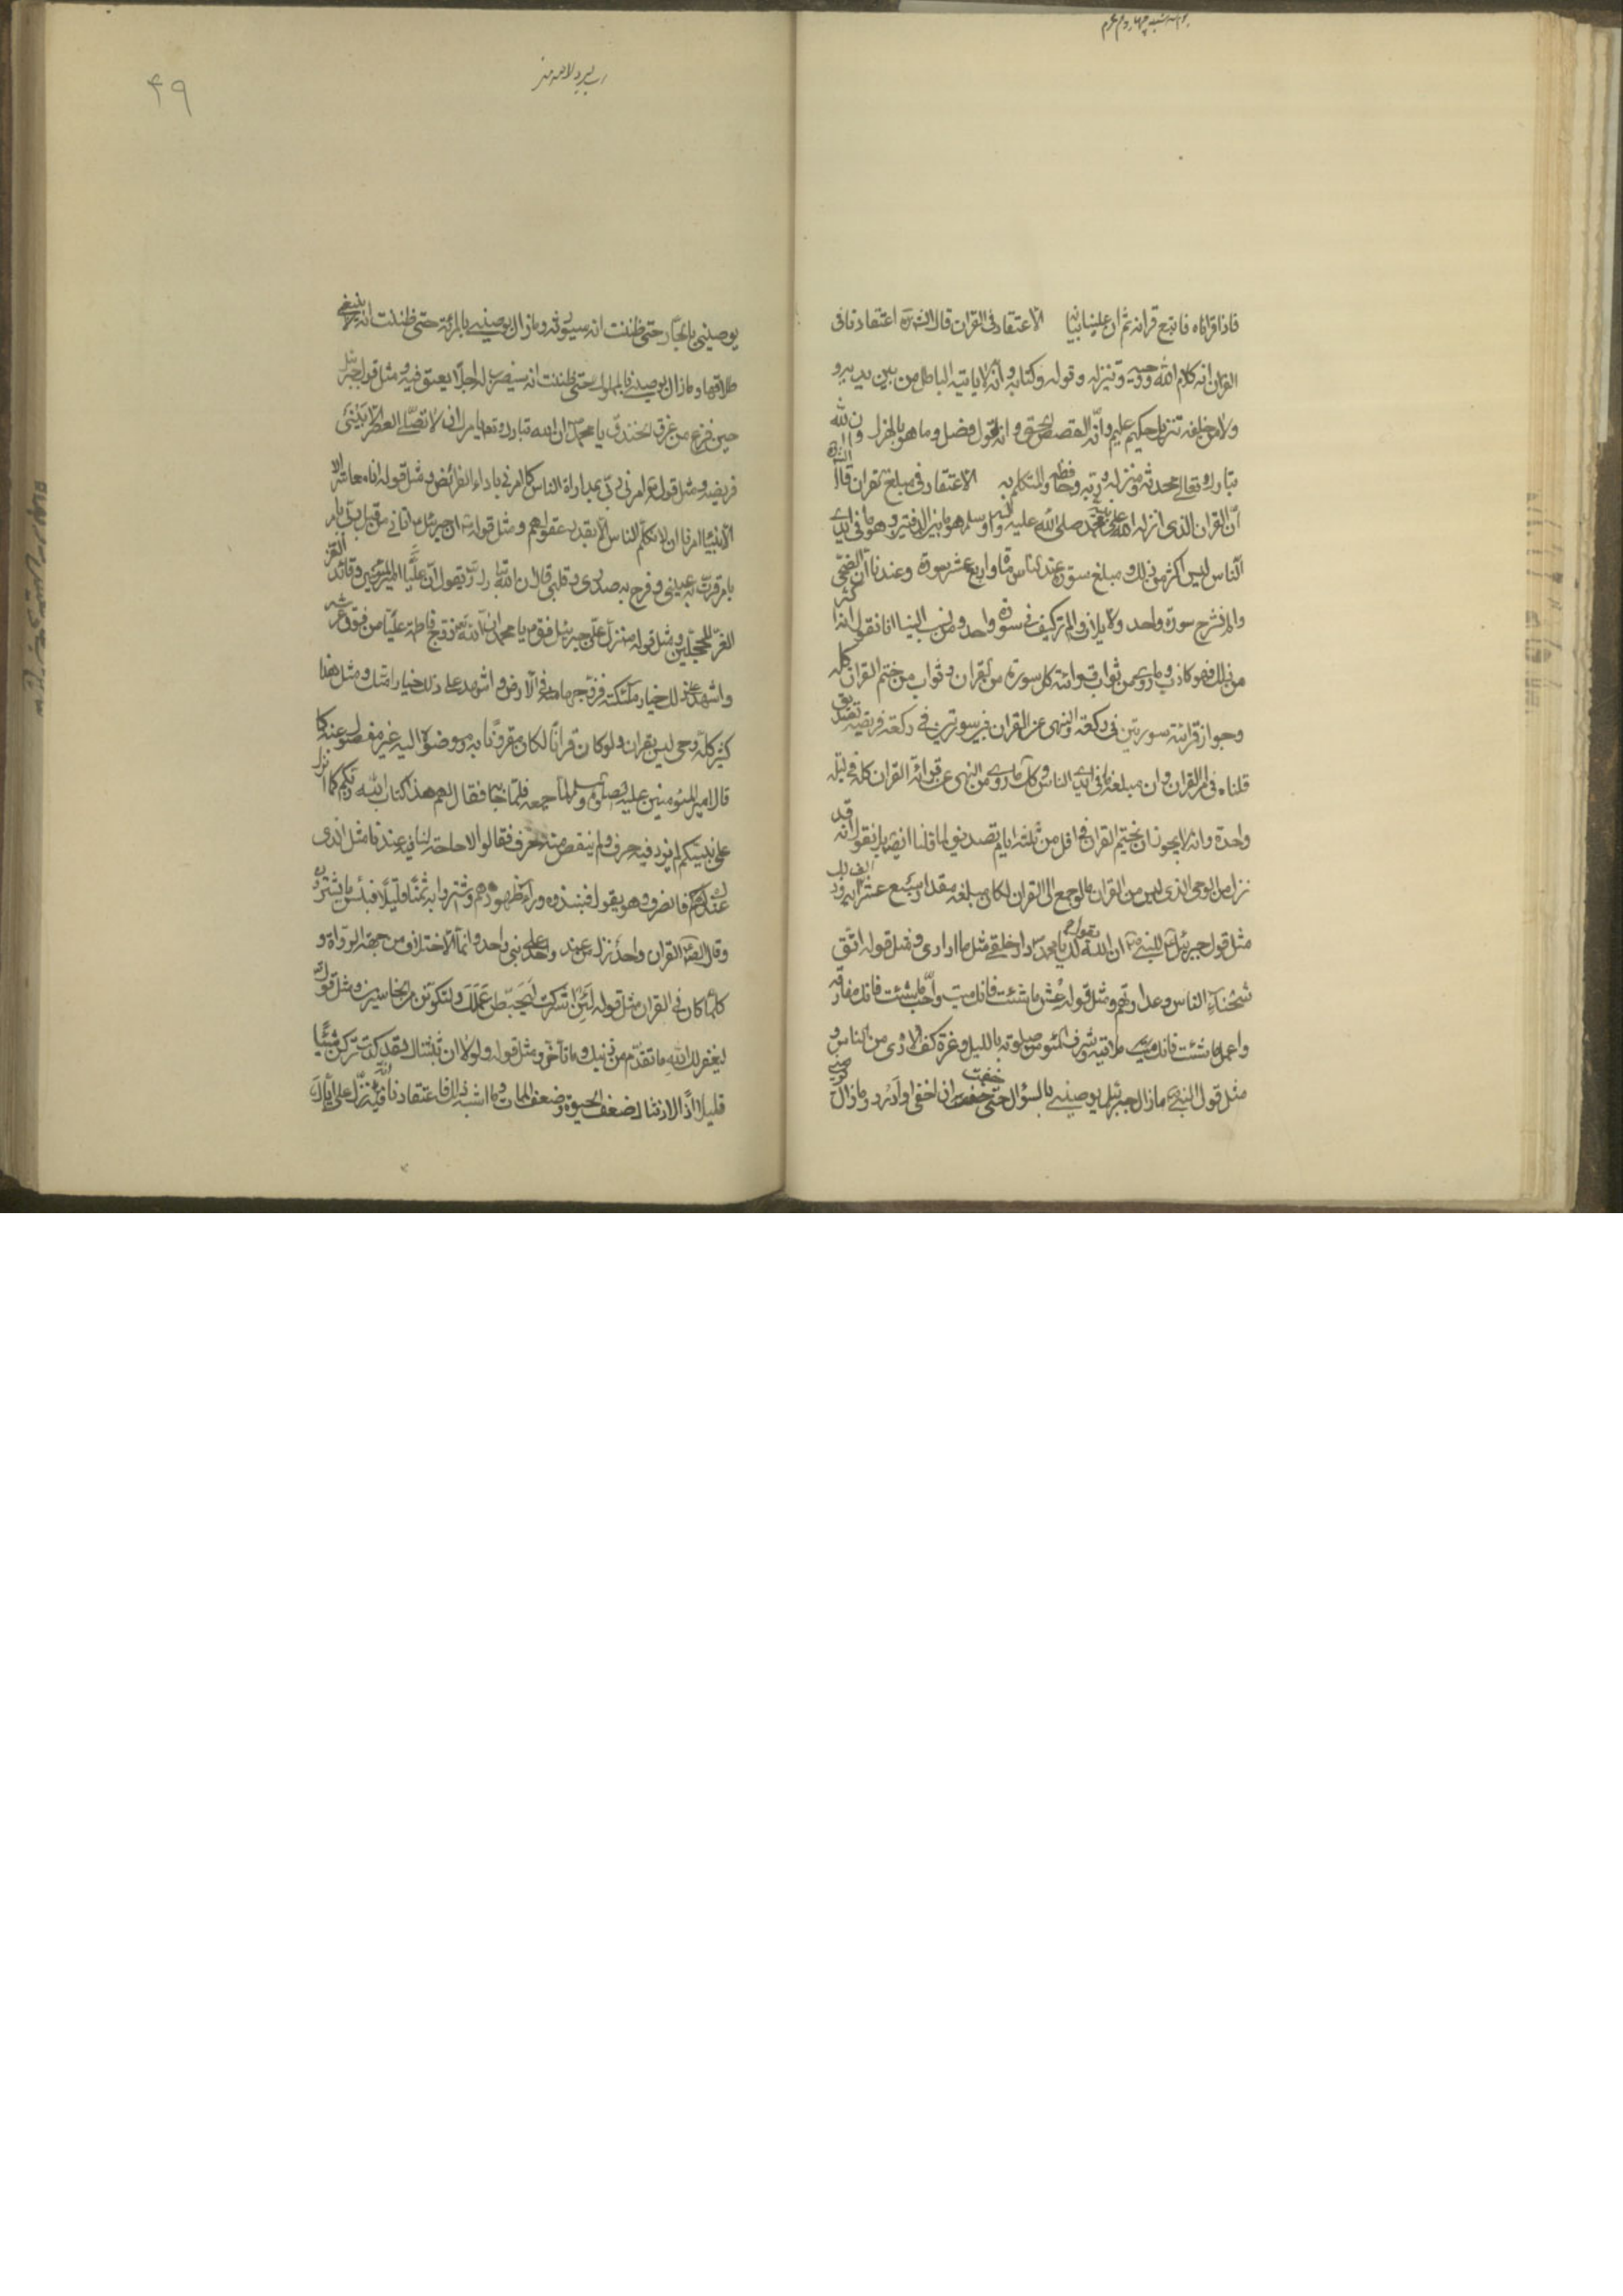 فاذا قراناه فاتبع قرانه ثم ان علينا بيانه الاعتقاد فى القران قال الشيخ ره اعتقادنا فى
القران انه كلام الله ووحيه وتنزيله وقوله وكتابه وانه لا ياتيه الباطل من بين يديه و
ولا من خلفه تنزيل حكيم عليم وانه القصص الحق وانه لقول فصل وما هو بالهزل وان الله
تبارك وتعالى محدثه ومنزله وربه وحافظه والمتكلم به الاعتقاد فى مبلغ القران قال
ان القران الذى انزله الله على نبيه محمد صلى الله عليه واله وسلم هو ما بين الدفتين وهو ما فى ايدى
الناس ليس اكثر من ذلك ومبلغ سوره عند الناس مائة واربع عشر سورة وعندنا ان الضحى
والم نشرح سورة واحدة ولايلاف والم تركيف سورة واحدة ومن نسب الينا انا نقول انه اكثر
من ذلك فهو كاذب وما روى من ثواب قرائة كل سورة من القران وثواب من ختم القران كله
وجواز قرائة سورتين فى ركعة والنهى عن القران بين سورتين فى ركعة فريضة تصديق
قلناه فى امر القران وان مبلغه ما فى ايدى الناس وكذلك ما روى من النهى عن قرائة القران كله فى ليلة
واحدة وانه لا يجوز ان يختم القران فى اقل من ثلثة ايام تصديق لما قلنا ايضا بل نقول انه قد
نزل من الوحى الذى ليس من القران ما لو جمع الى القران لكان مبلغه مقدار سبع عشر الف اية وذلك
مثل قول جبرئيل للنبى ص ان الله يقول لك يا محمد دار خلقى مثل ما ادارى ومثل قوله اتق
شحناء الناس وعداوتهم ومثل قوله عش ما شئت فانك ميت واحب ما شئت فانك مفارقه
واعمل ما شئت فانك ملاقيه وشرف المؤمن صلوته بالليل وعزه كف الاذى من الناس و
مثل قول النبى ع ما زال جبرئيل يوصينى بالسؤال حتى خفت ان احفى او ادرد وما زال
۴۹
يوصينى بالجار حتى ظننت انه سيورثه وما زال يوصينى بالمرئة حتى ظننت انه لا ينبغى
طلاقها وما زال يوصينى بالمملوك حتى ظننت انه سيضرب له اجلا يعتق فيه ومثل قول جبرئيل
حين فرغ من غزو الخندق يا محمد ان الله تبارك وتعالى يامرك ان لا تصلى العصر الا ببنى
قريضه ومثل قوله ع امرنى ربى بمداراة الناس كما امرنى باداء الفرائض ومثل قوله انا معاشر
الانبياء امرنا ان لا نكلم الناس الا بقدر عقولهم ومثل قوله ان جبرئيل اتانى من قبل ربى بامر
بامر قرت به عينى وفرح به صدرى وقلبى قال ان الله تبارك وتعالى يقول ان عليا امير المؤمنين وقائد الغر
الغر المحجلين ومثل قوله نزل على جبرئيل فقال يا محمد ان الله قد زوج فاطمة عليا من فوق عرشه
واشهد على ذلك خيار ملئكته فزوجها منه فى الارض واشهد على ذلك خيار امتك ومثل هذا
كثير كله وحى ليس بقران ولو كان قرانا لكان مقرونا به وموصولا اليه غير مفصول عنه كما
قال امير المؤمنين عليه الصلوة والسلام لما جمعه فلما جاء به فقال لهم هذا كتاب الله ربكم كما انزل
على نبيكم لم يزد فيه حرف ولم ينقص منه حرف فقالوا لا حاجة لنا فيه عندنا مثل الذى
عندك فانصرف وهو يقول فنبذوه وراء ظهورهم واشتروا به ثمنا قليلا فبئس ما يشترون
وقال الصادق القران واحد نزل من عند واحد على نبى واحد وانما الاختلاف من جهة الرواة و
كلما كان فى القران مثل قوله لئن اشركت ليحبطن عملك ولتكونن من الخاسرين ومثل قوله
ليغفر لك الله ما تقدم من ذنبك وما تاخر ومثل قوله ولولا ان ثبتناك لقد كدت تركن شيئا
قليلا اذا لاذقناك ضعف الحيوة وضعف الممات وما اشبه ذلك فاعتقادنا فيه انه نزل على اياك